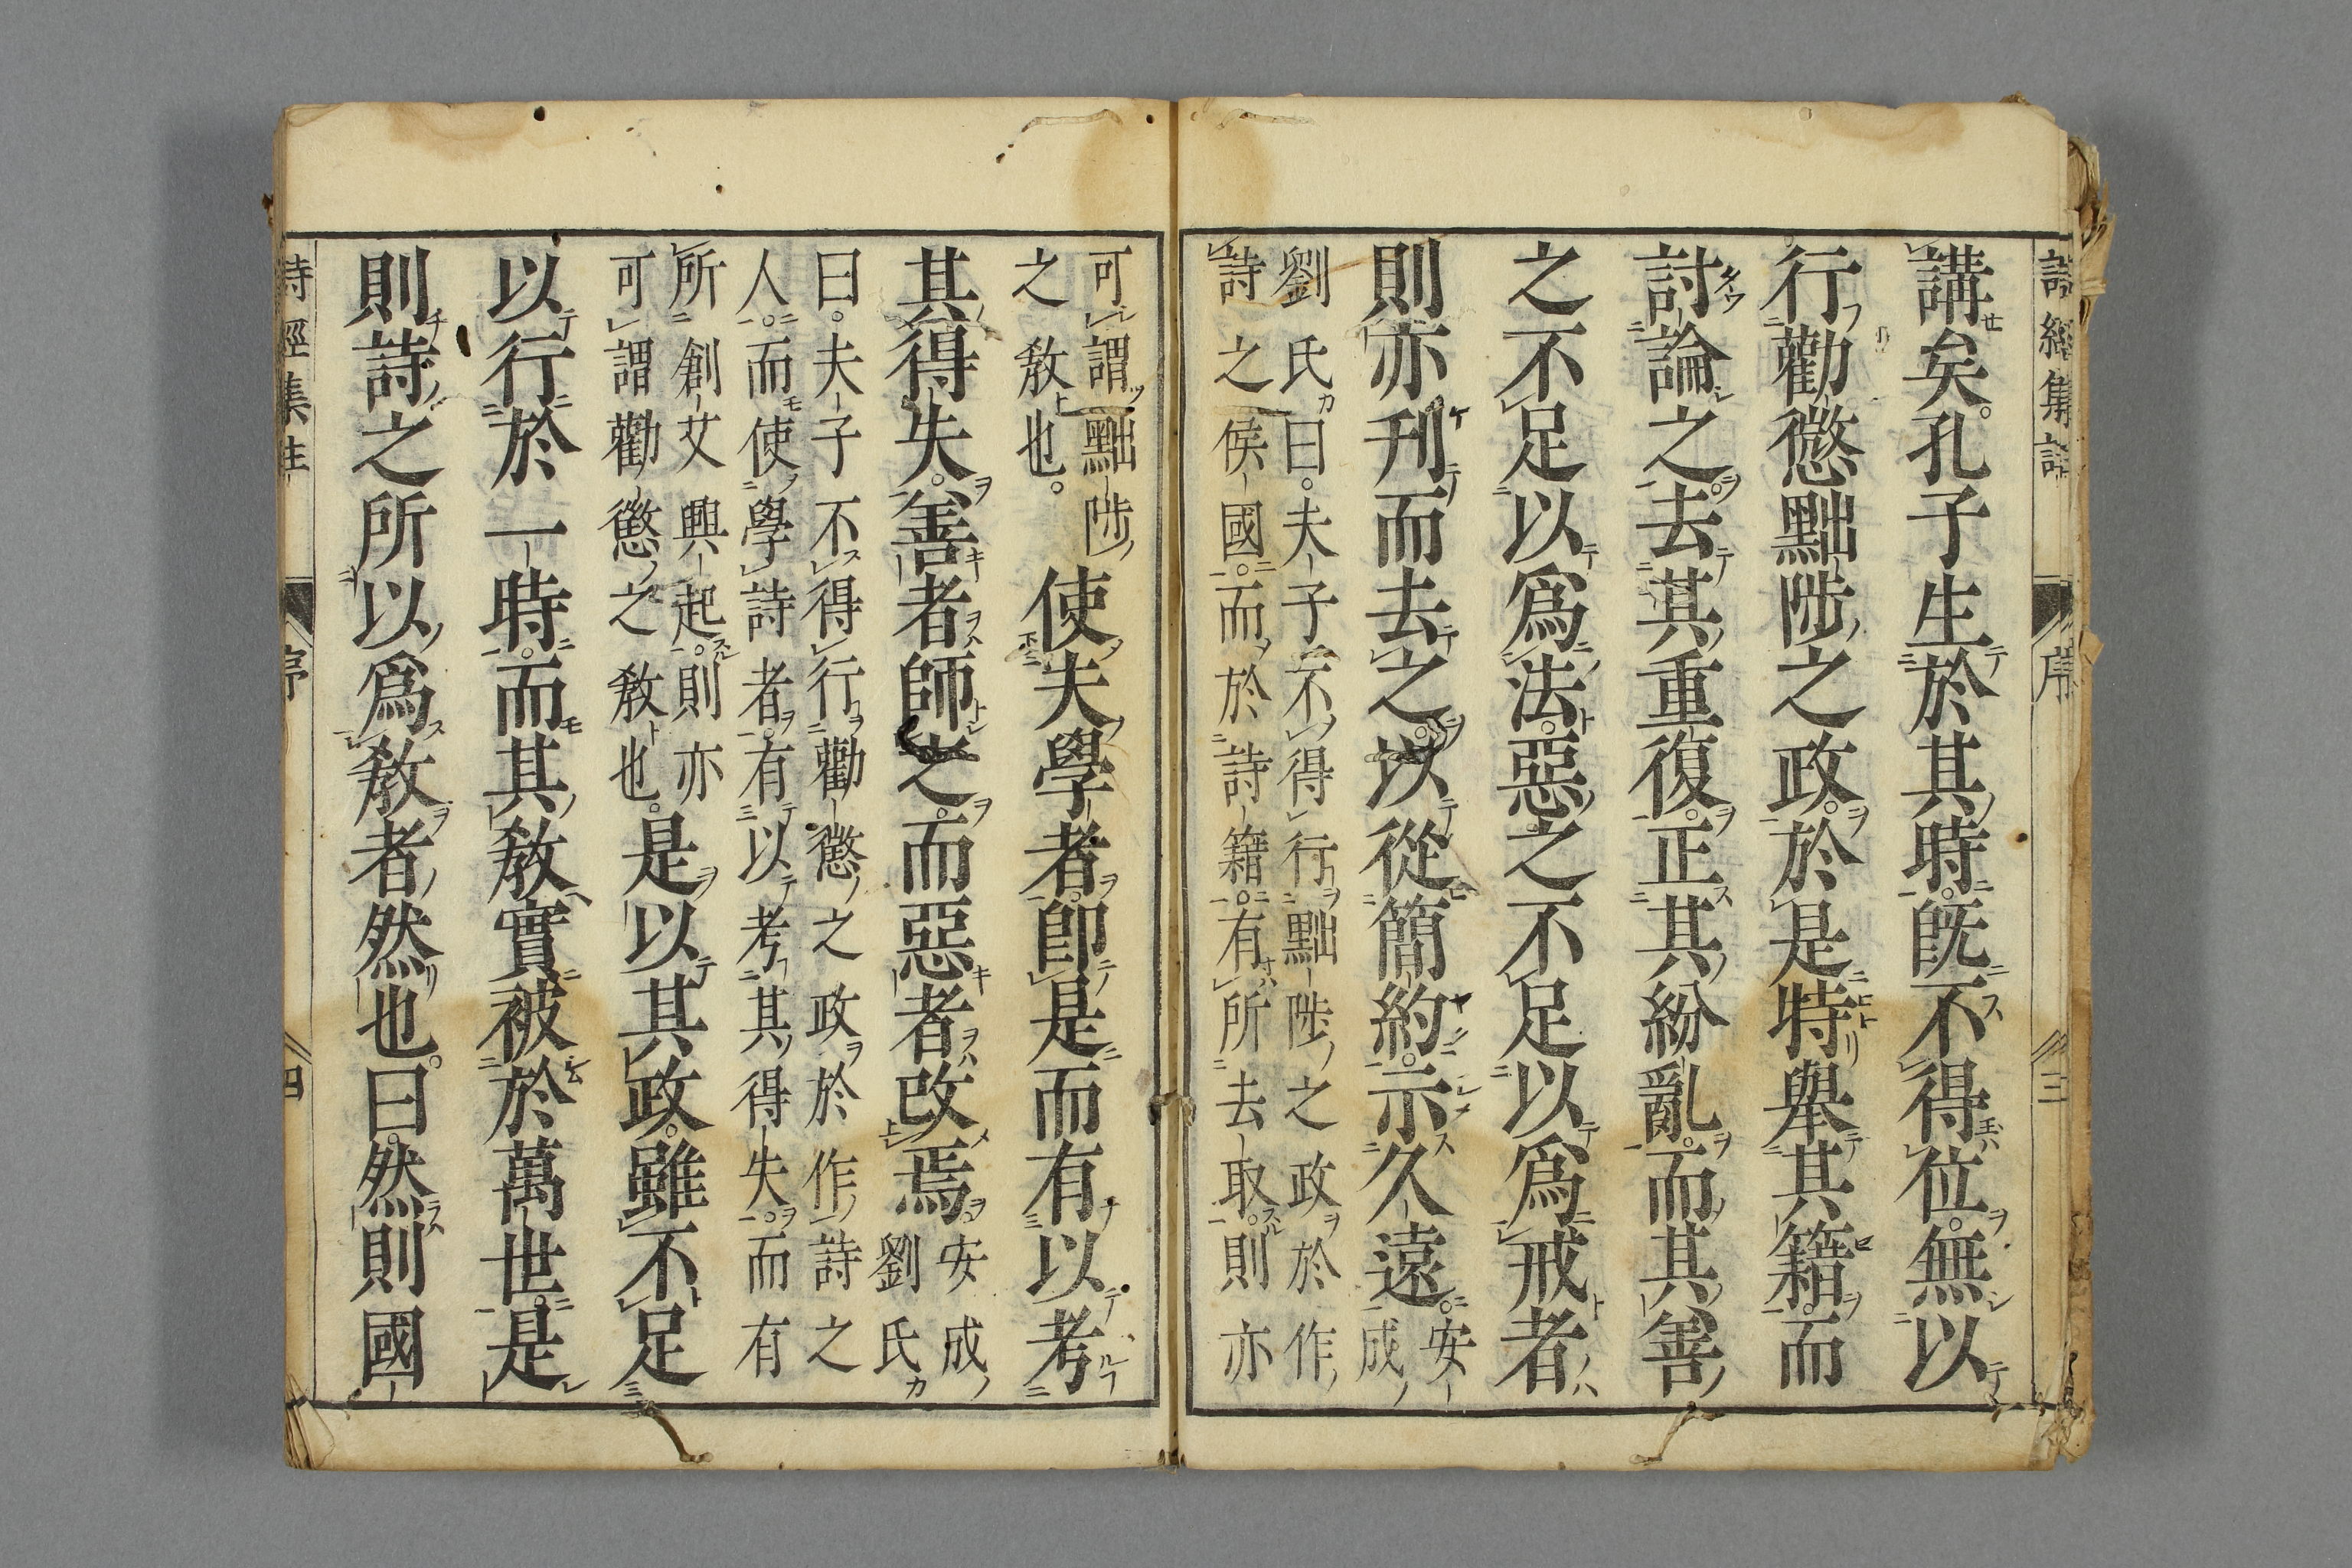 詩經集註
序
三
講矣。孔子生於其時。既不得位。無以
行勸懲黜陟之政。於是特舉其籍。而
討論之。去其重復。正其紛亂。而其善
之不足以爲法。惡之不足以爲戒者
則亦刊而去之。以從簡約。示久遠。安成
劉氏曰。夫子不得行黜陟之政於作
詩之侯國。而於詩籍。有所去取。則亦
可謂黜陟
之敎也。
使夫學者。即是而有以考
其得失。善者師之。而惡者改焉。安成
劉氏
曰。夫子不得行勸懲之政於作詩之
人。而使學詩者。有以考其得失。而有
所創艾興起。則亦
可謂勸懲之敎也。
是以其政。雖不足
以行於一時。而其敎實被於萬世。是
則詩之所以爲敎者然也。曰然則國
詩經集註
序
四